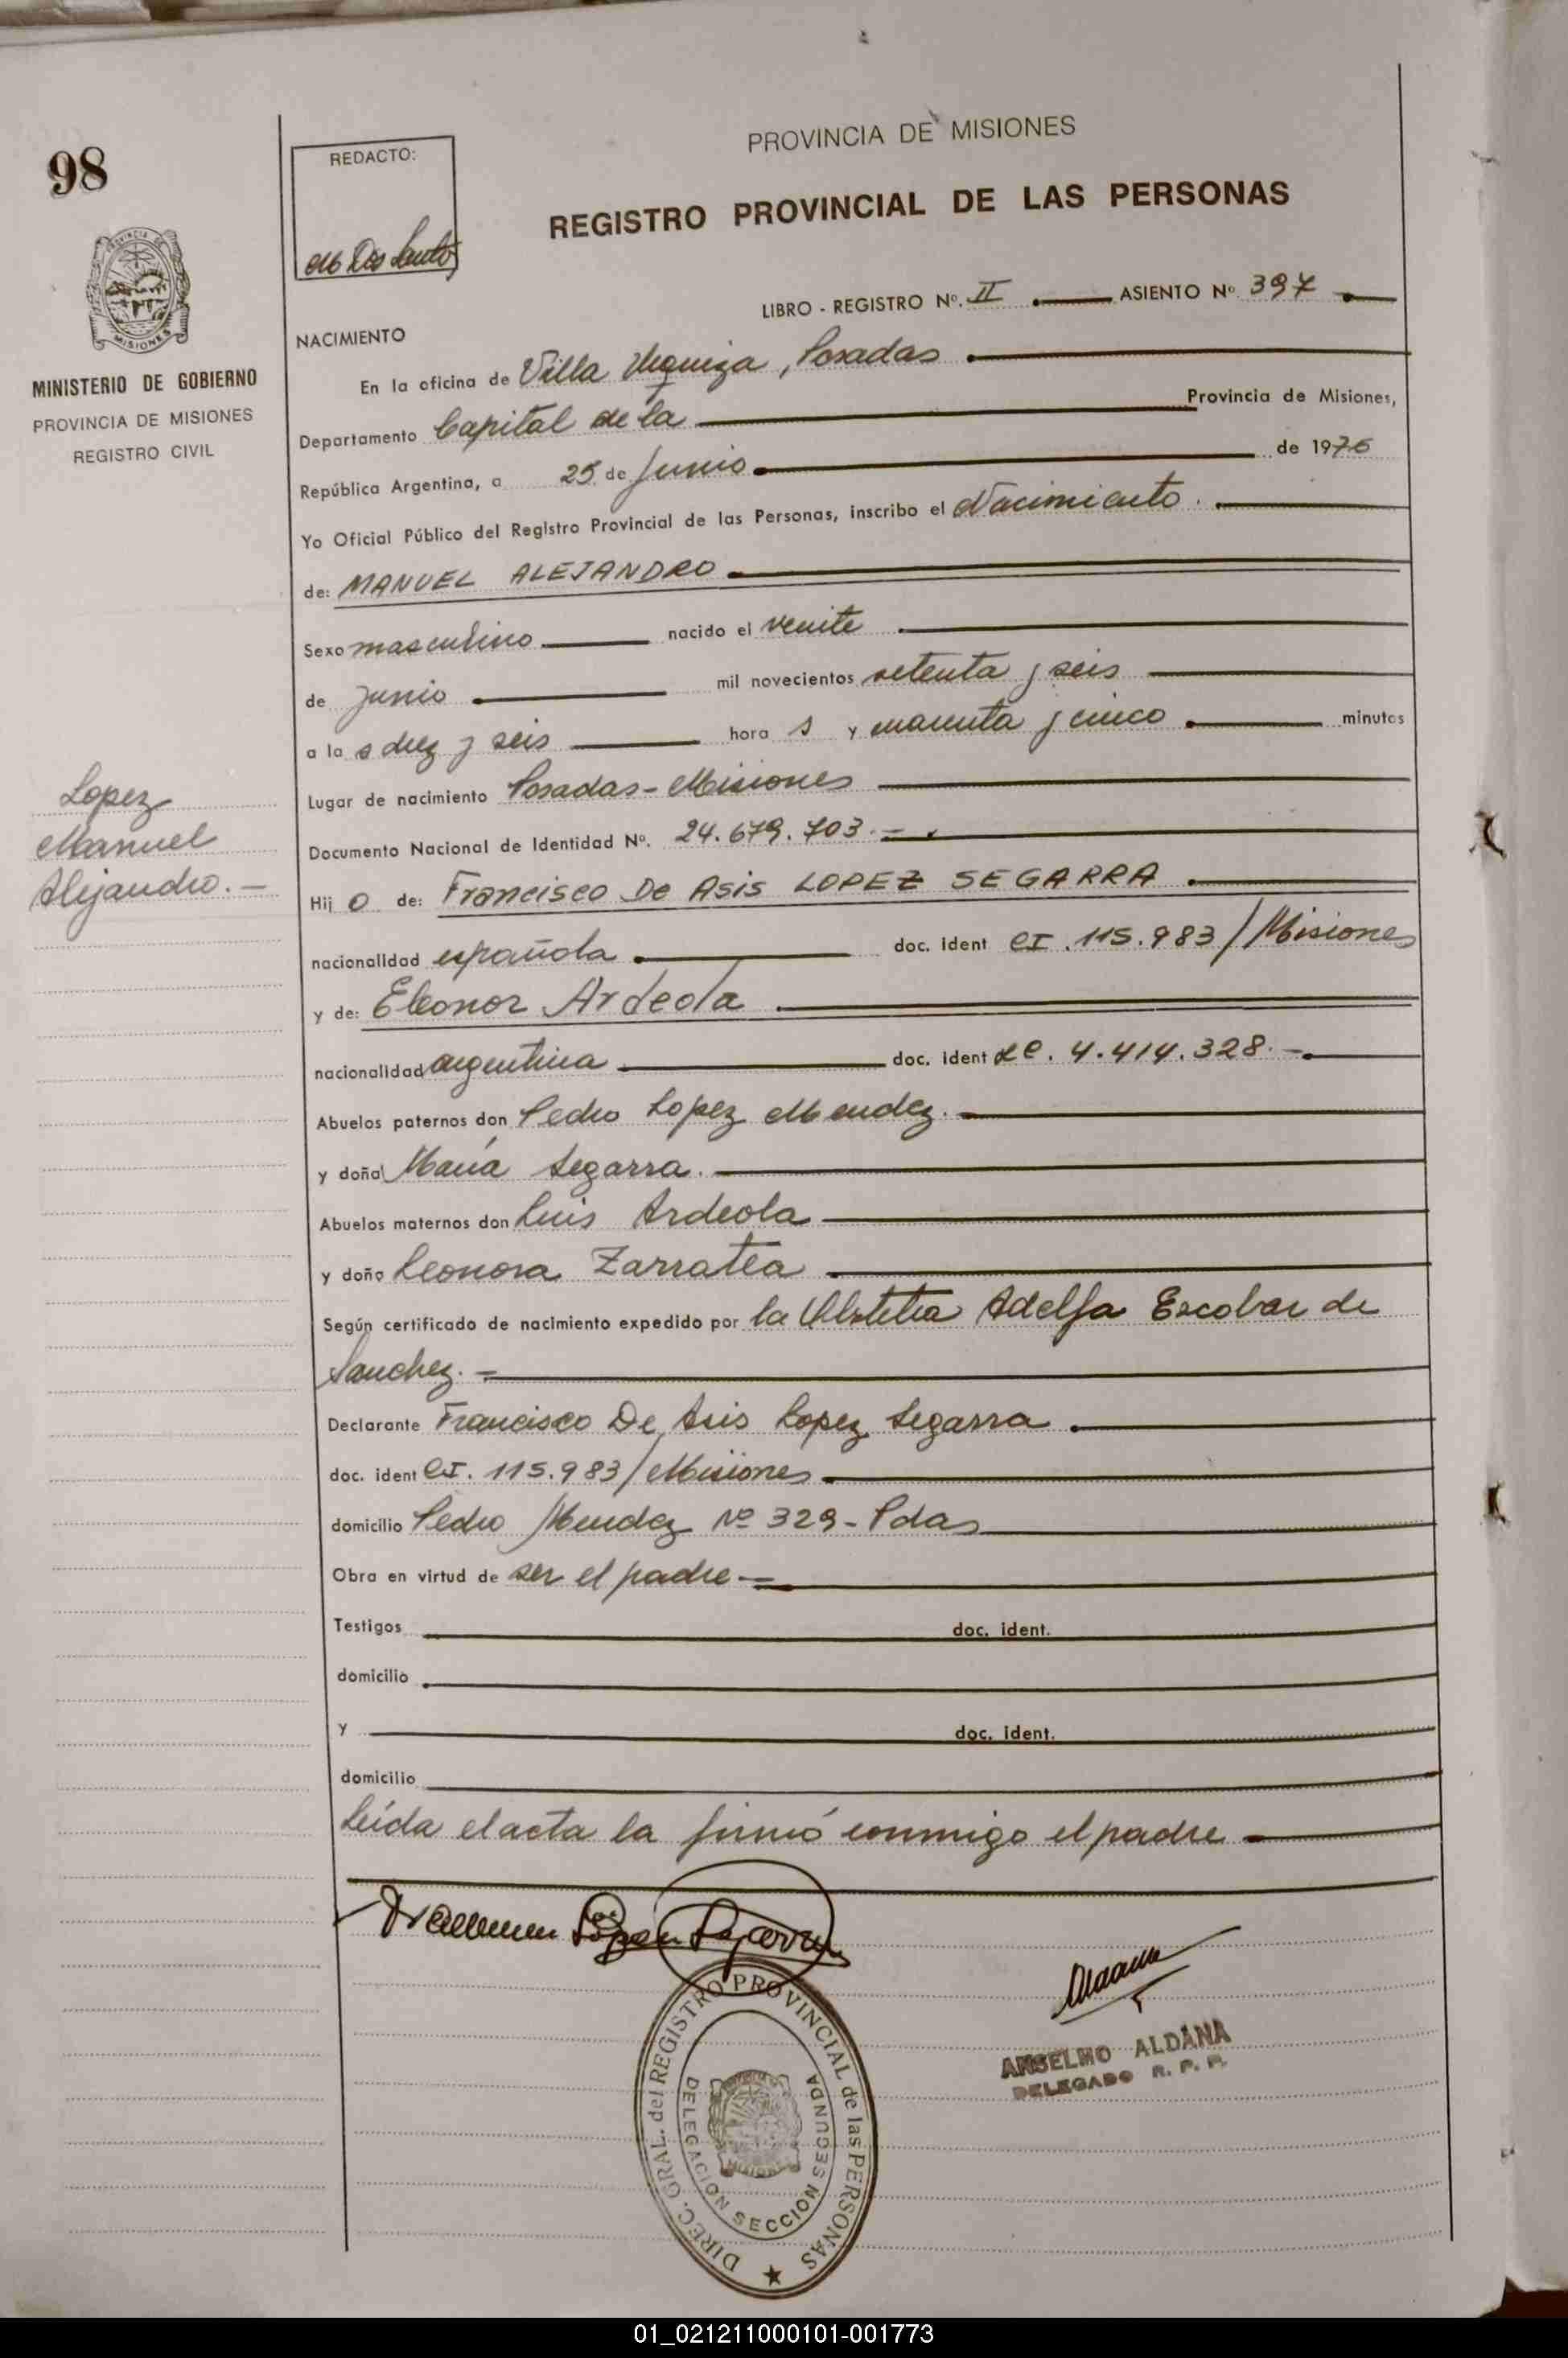 98
REDACTO:
PROVINCIA DE MISIONES
REGISTRO PROVINCIAL DE LAS PERSONAS
LIBRO - REGISTRO Nº. II ASIENTO Nº 397
PROVINCIA DE MISIONES
MINISTERIO DE GOBIERNO
PROVINCIA DE MISIONES
REGISTRO CIVIL
NACIMIENTO
En la oficina de Villa Urquiza, Posadas
Departamento Capital de la Provincia de Misiones,
República Argentina, a 25 de Junio de 1976
Yo Oficial Público del Registro Provincial de las Personas, inscribo el Nacimiento.
de: MANUEL ALEJANDRO
Sexo masculino nacido el veinte
de junio mil novecientos setenta y seis
a la s diez y seis hora s y cuarenta y cinco minutos
Lopez
Manuel
Alejandro.-
Lugar de nacimiento Posadas - Misiones
Documento Nacional de Identidad Nº. 24.679.703.-
Hij o de: Francisco De Asis LOPEZ SEGARRA
nacionalidad española doc. ident CI. 115.983/Misiones
y de: Eleonor Ardeola
nacionalidad argentina doc. ident LC. 4.414.328.-
Abuelos paternos don Pedro Lopez Mendez.
y doña María Segarra.
Abuelos maternos don Luis Ardeola
y doña Leonora Zarratea
Según certificado de nacimiento expedido por la Obstetra Adelfa Escobar de
Sanchez.-
Declarante Francisco De Asis Lopez Segarra
doc. ident CI. 115.983/Misiones
domicilio Pedro Mendez Nº 329 - Pdas
Obra en virtud de ser el padre-
Testigos doc. ident.
domicilio
y doc. ident.
domicilio
Leída el acta la firmó conmigo el padre
ANSELMO ALDANA
DELEGADO R. P. P.
DIREC. GRAL. del REGISTRO PROVINCIAL de las PERSONAS
DELEGACION SECCION SEGUNDA
01_021211000101-001773